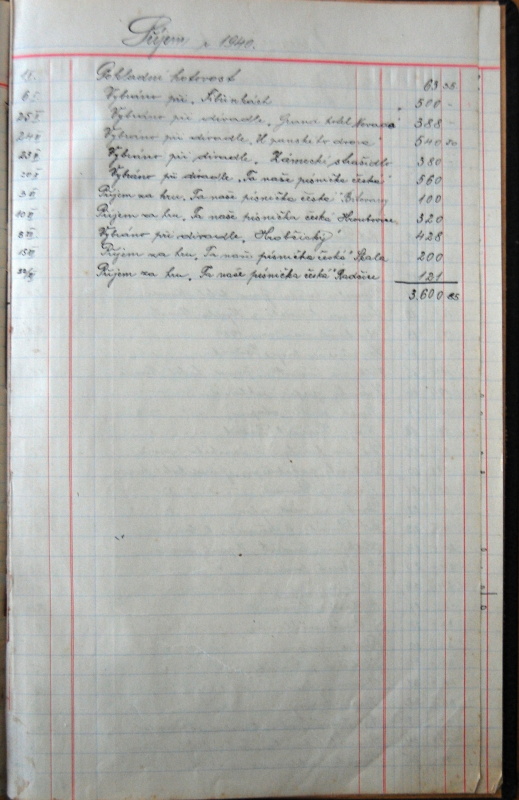 Příjem r. 1940.
Pokladní hotovost 63 35
Vybráno při 500 -
25/II Vybráno při divadle „Grand hotel Nevada" 388 -
Vybráno při divadle „U panského dvora" 540 50
Vybráno při divadle „Zámecké strašidlo" 380 -
Vybráno při divadle „Ta naše písnička česká" 560
Příjem za hru „Ta naše písnička česká" Bitovany 100
Příjem za hru „Ta naše písnička česká" Hroubovice 320
Vybráno při divadle „Hrobčický" 428
Příjem za hru „Ta naše písnička česká" Skála 200
Příjem za hru „Ta naše písnička česká" Radčice 121
3.600 85